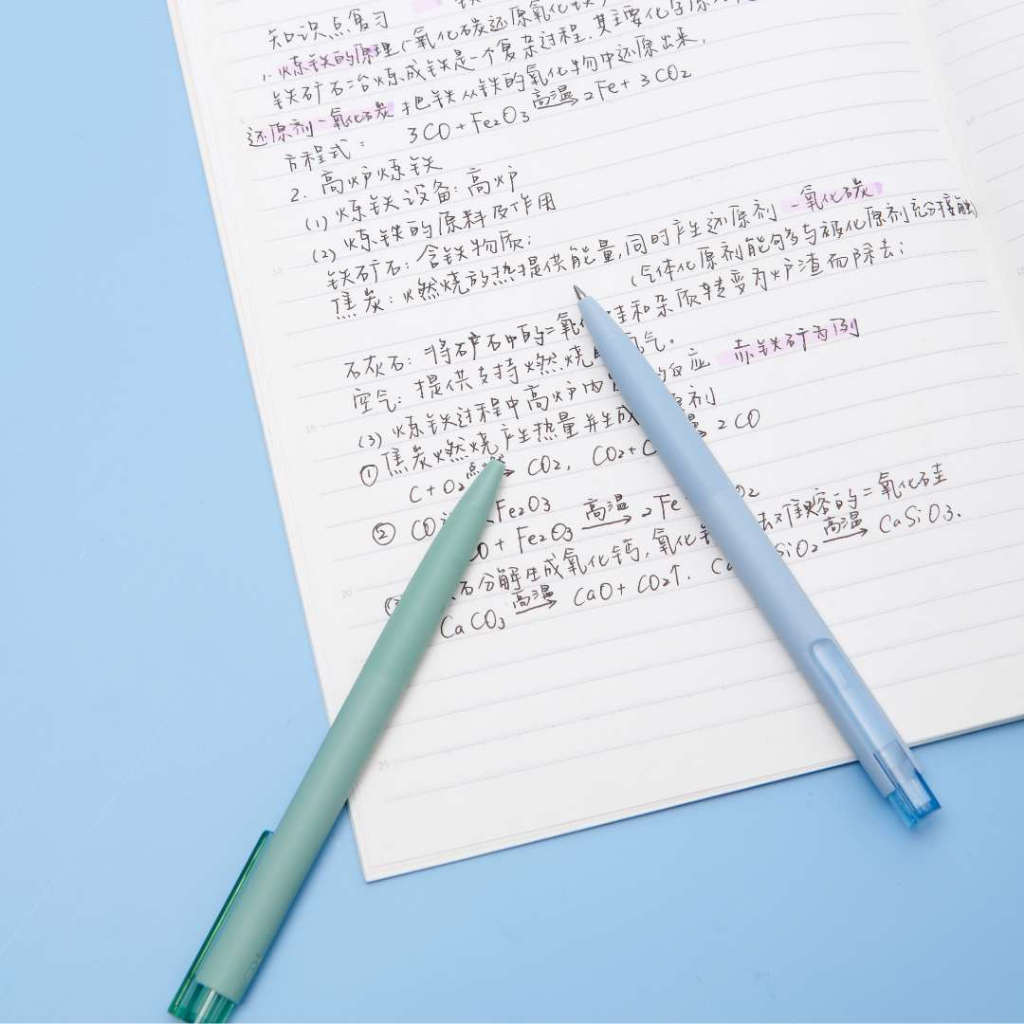 知识点复习
1. 炼铁的原理(一氧化碳还原氧化铁)
铁矿石冶炼成铁是一个复杂过程.其主要化学原
还原剂一氧化碳 把铁从铁的氧化物中还原出来,
方程式: 3CO+Fe₂O₃ 高温→ 2Fe+3CO₂
2. 高炉炼铁
(1) 炼铁设备:高炉
(2) 炼铁的原料及作用
铁矿石:含铁物质;
焦炭:燃烧的热提供能量,同时产生还原剂 一氧化碳
(气体化原剂能够与被化原剂充分接触)
石灰石:将矿石中的二氧化 硅和杂质转变为炉渣而除去;
空气:提供支持燃烧 氧气.
(3) 炼铁过程中高炉内 的反应 赤铁矿为例
① 焦炭燃烧产生热量并生成 原剂
C+O₂ 点燃→ CO₂, CO₂+C 2CO
② CO Fe₂O₃
CO+Fe₂O₃ 高温→ 2Fe O₂
石分解生成氧化钙,氧化 难熔的二氧化硅
CaCO₃ 高温→ CaO+CO₂↑. Ca SiO₂ 高温→ CaSiO₃.